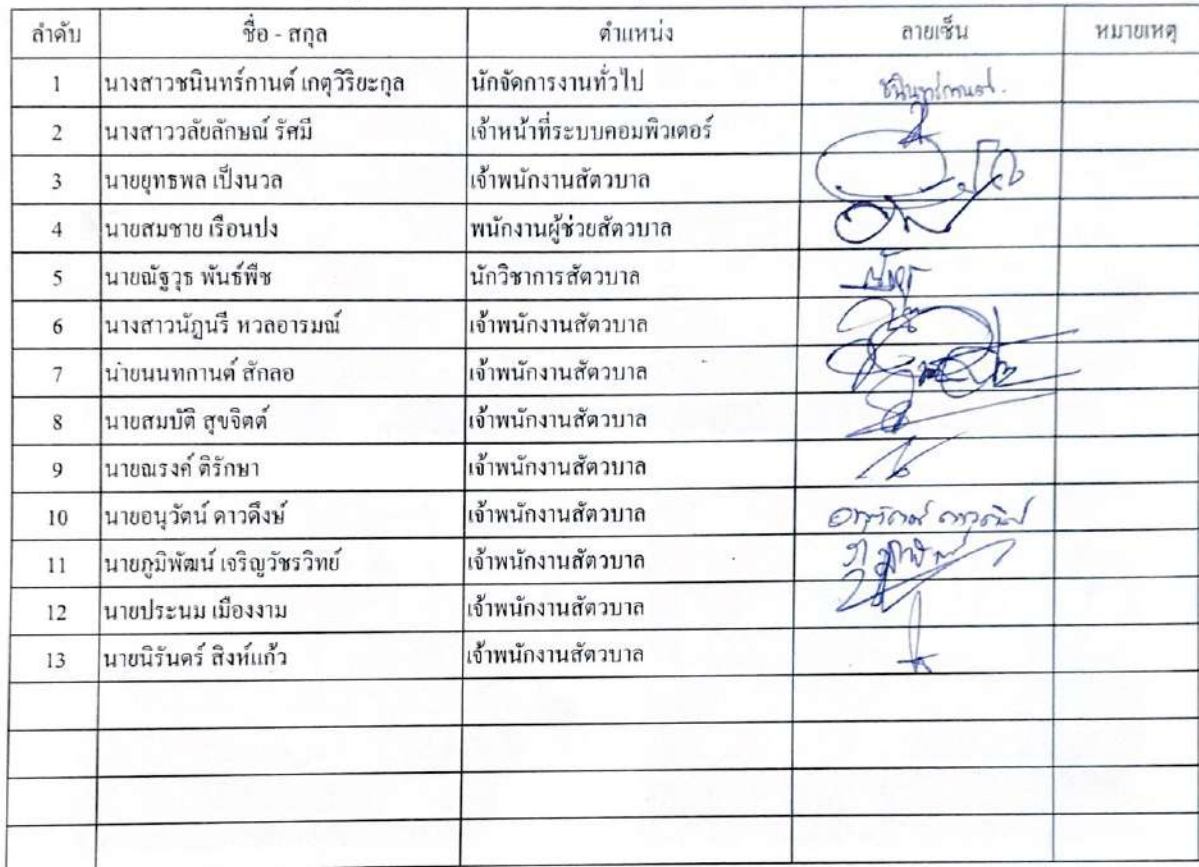 ลำดับ ชื่อ - สกุล ตำแหน่ง ลายเซ็น หมายเหตุ
1 นางสาวชนินทร์กานต์ เกตุวิริยะกุล นักจัดการงานทั่วไป ชนินทร์กานต์
2 นางสาววลัยลักษณ์ รัศมี เจ้าหน้าที่ระบบคอมพิวเตอร์
3 นายยุทธพล เป็งนวล เจ้าพนักงานสัตวบาล
4 นายสมชาย เรือนปง พนักงานผู้ช่วยสัตวบาล
5 นายณัฐวุธ พันธ์พืช นักวิชาการสัตวบาล
6 นางสาวนัฎนรี หวลอารมณ์ เจ้าพนักงานสัตวบาล
7 นายนนทกานต์ สักลอ เจ้าพนักงานสัตวบาล
8 นายสมบัติ สุขจิตต์ เจ้าพนักงานสัตวบาล
9 นายณรงค์ ติรักษา เจ้าพนักงานสัตวบาล
10 นายอนุวัตน์ ดาวดึงษ์ เจ้าพนักงานสัตวบาล
11 นายภูมิพัฒน์ เจริญวัชรวิทย์ เจ้าพนักงานสัตวบาล
12 นายประนม เมืองงาม เจ้าพนักงานสัตวบาล
13 นายนิรันดร์ สิงห์แก้ว เจ้าพนักงานสัตวบาล